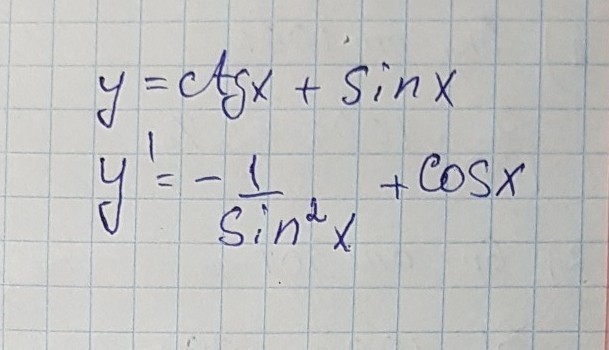 y = ctgx + sinx
y' = - 1/sin²x + cosx